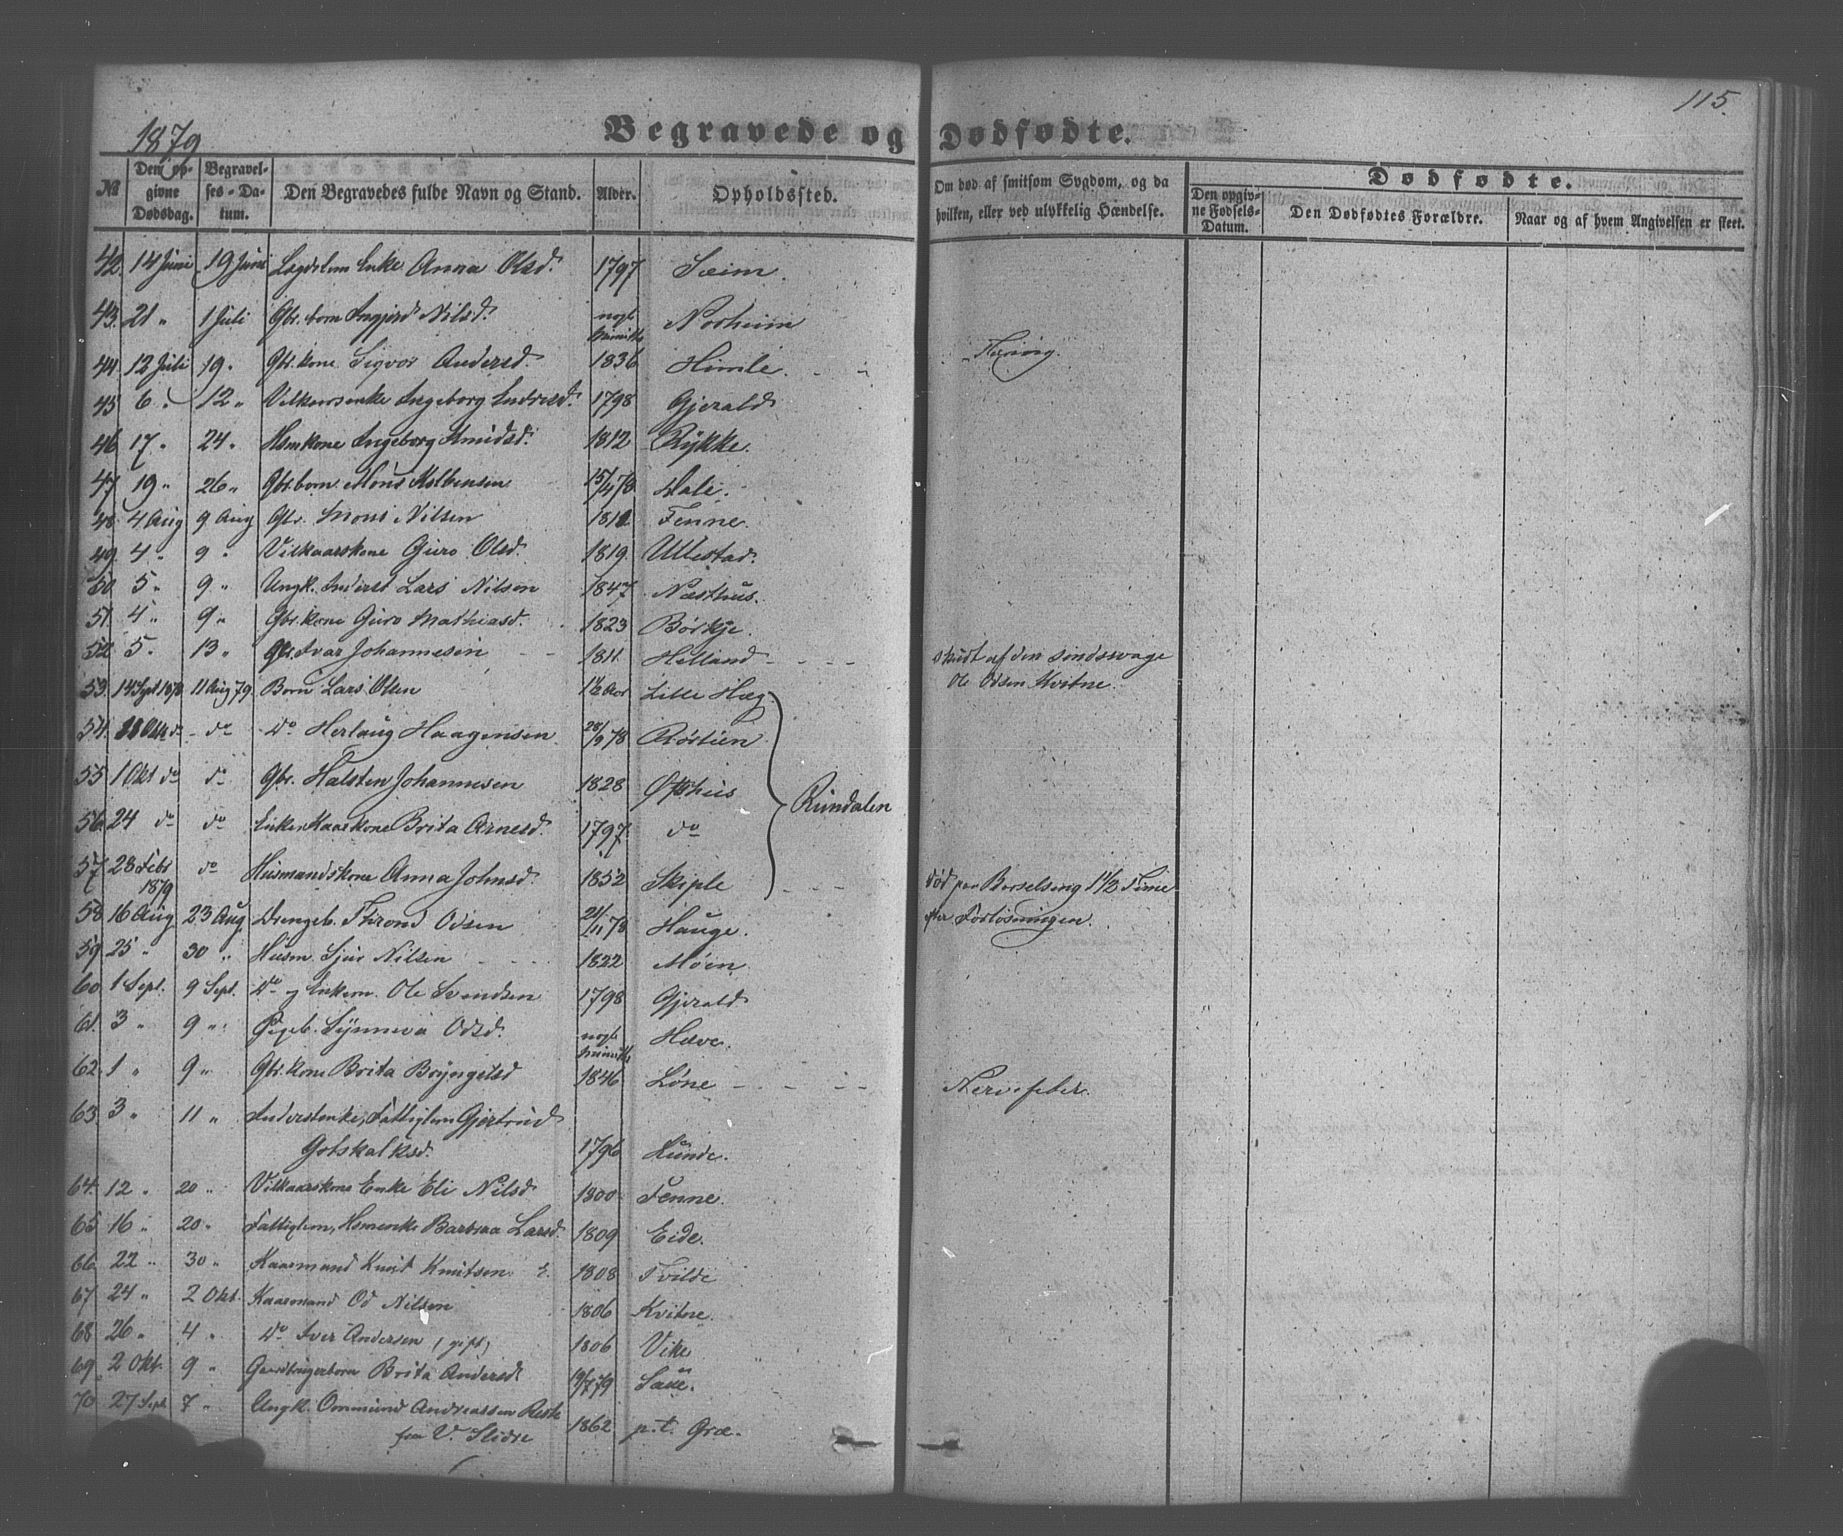 115.
1879
Begravede og Dødfødte.
№ Den opgivne Dødsdag. Begravelses-Datum. Den Begravedes fulde Navn og Stand. Alder. Opholdssted. Om død af smitsom Sygdom, og da hvilken, eller ved ulykkelig Hændelse. Dødfødte.
Den opgivne Fødsels-Datum. Den Dødfødtes Forældre. Naar og af hvem Angivelsen er skeet.
42 14 Juni 19 Juni Lægdslem Enke Anna Olsd. 1797 Seim
43. 21 „ 1 Juli Gbr. barn Ingjerd Nilsd. nogle Minutter Norheim
44 12 Juli 19. Gbr. kone Sigvor Andersd. 1836 Himle.
45 6 „ 12 „ Vilkaarsenke Ingeborg Endresd. 1798 Gjerald
46 17 „ 24 „ Hsmkone Ingeborg Knudsd. 1812 Rykke.
47 19 „ 26 „ Gbr. barn Mons Kolbensen 15/4 78 Dale.
48 4 Aug 9 Aug Gbr. Mons Nilsen Fenne.
49 4 „ 9 „ Vilkaarskone Guro Olsd. 1819. Ullestad.
50 5 „ 9 „ Ungk. Inderst Lars Nilsen 1847 Næsthus.
51. 4 „ 9 „ Gbr. kone Guro Mathiasd. 1823 Børkje.
52 5 „ 13 „ Gbr. Ivar Johannesen 1811. Helland skudt af den sindssvage
Ole Odsen Kvitne.
53. 14 Sept 1878 11 Aug 79 Barn Lars Olsen 1½ Aar Lille Hæg
54. do do Herlaug Haagensen 28/9 78 Rørlien
55 1 Okt do do Gbr. Halsten Johannesen 1828 Øfsthus Rundalen
56. 24 do do Enke Kaarkone Brita Arnesd. 1797. do
57 28 Febr 1879 do Husmandskone Anna Johnsd. 1852 Skiple død paa Barselseng 1½ Time
efter Forløsningen.
58 16 Aug 23 Aug. Drengeb. Thrond Odsen 21/11 78 Hauge.
59 25 „ 30 „ Husm. Sjur Nilsen 1822 Møen
60 1 Sept. 9 Sept. do og Enkem. Ole Svendsen 1798 Gjerald
61. 3 „ 9 „ Pigeb. Synneva Odsd. nogle Minutter Hæve.
62. 1 „ 9 „ Gbr. kone Brita Bryngelsd 1846 Løne Nervefeber.
63. 3 „ 11 „ Inderstenke, Fattiglem Gjertrud
Gotskalksd. 1796 Lunde.
64. 12 „ 20 „ Vilkaarskone Enke Eli Nilsd 1800 Fenne.
65 16 „ 20 „ Fattiglem, Hsmenke Barbraa Larsd. 1809 Eide.
66 22 „ 30 „ Kaarmand Knut Knutsen E. 1808 Tvilde
67 24 „ 2 Okt. Kaarmand Od Nilsen 1806 Kvitne.
68 26 „ 4 „ do Iver Andersen (gift) 1806 Vike
69 2 Okt. 9 „ Gaardbrugerbarn Brita Andersd. 19/7 79 Saue.
70 27 Sept. 7 „ Ungk. Ommund Andreassen
fra V. Slidre 1862 p.t. Græ.